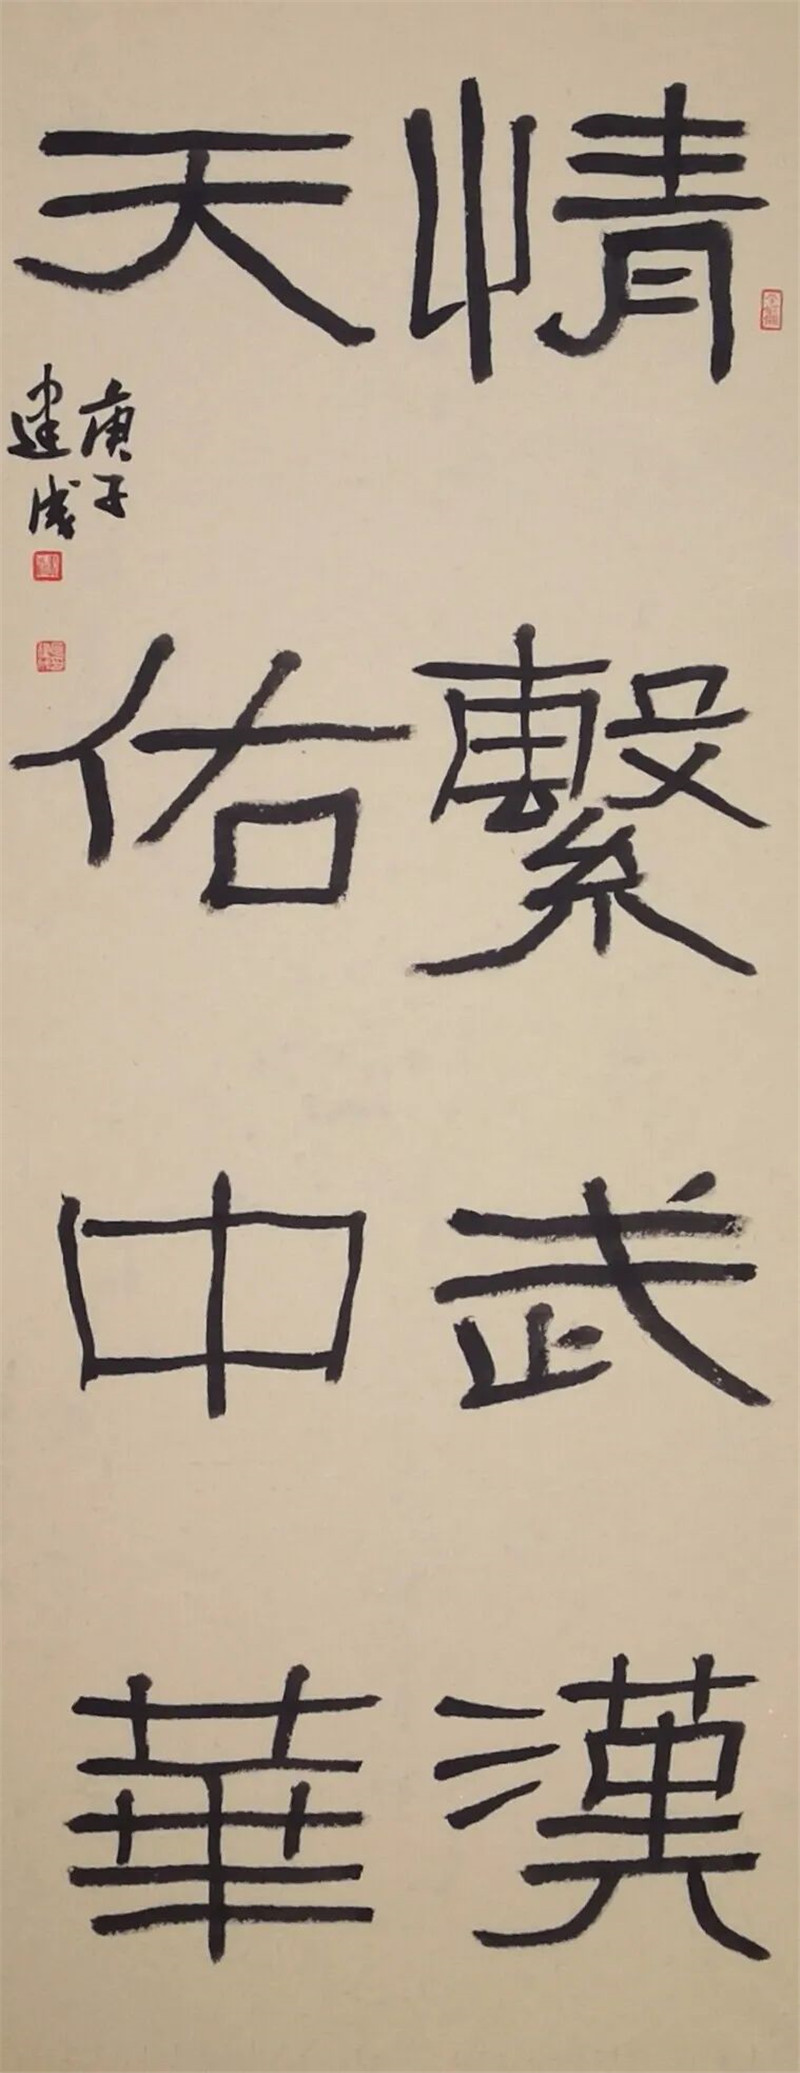 情繫武漢
天佑中華
庚子
建成